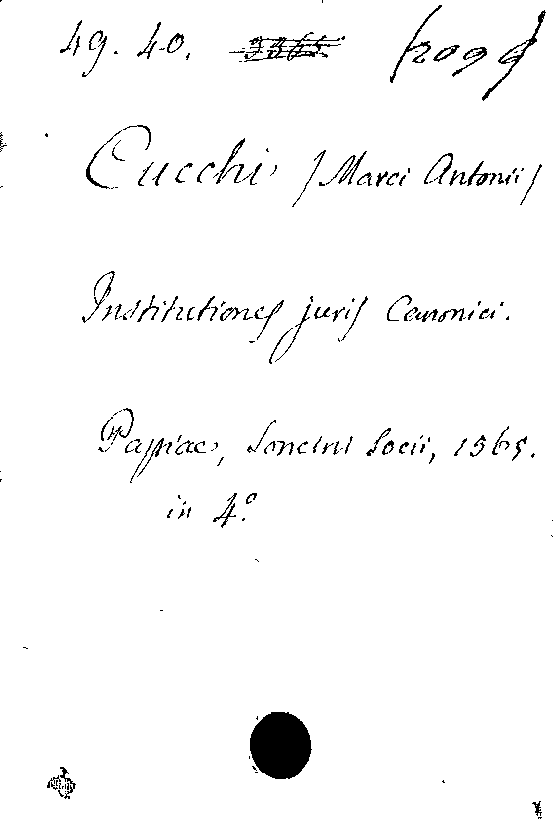 49. 40. 3365 [2099]
Cucchi /Marci Antonii/
Institutiones juris Canonici.
Papiae, Soncini Socii, 1565.
in 4.º